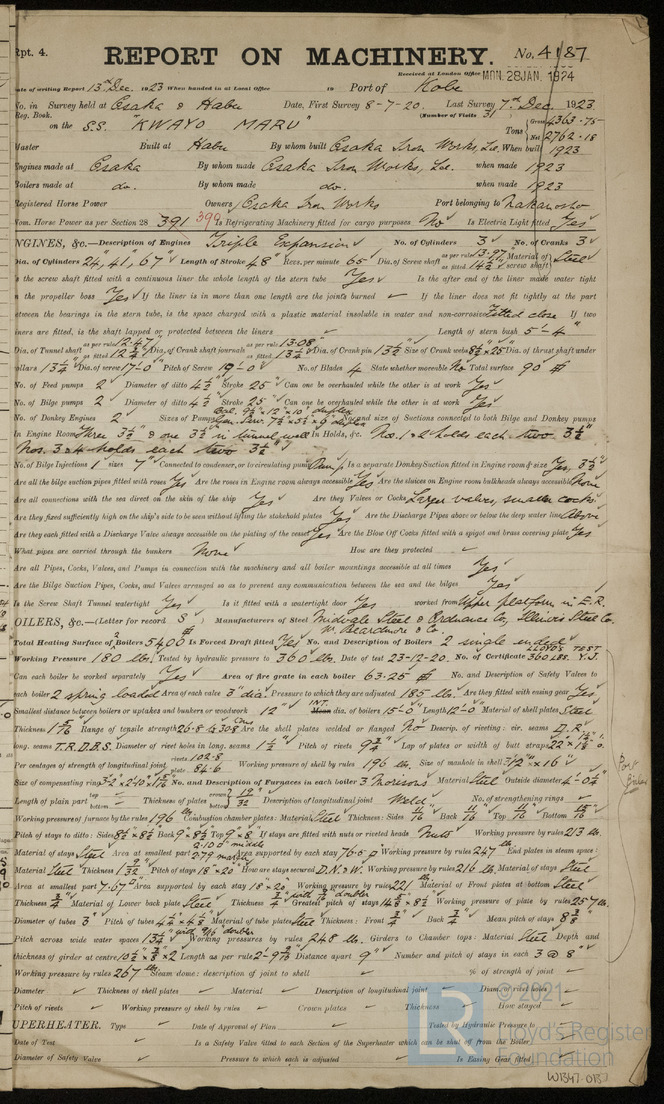 Rpt. 4.
REPORT ON MACHINERY. No. 4187
Received at London Office MON. 28 JAN. 1924
Date of writing Report 13th Dec. 1923 When handed in at Local Office 19 Port of Kobe
No. in Survey held at Osaka & Habu Date, First Survey 8-7-20. Last Survey 7th Dec. 1923
Reg. Book. (Number of Visits 31)
on the S.S. "KWAYO MARU" Tons Gross 4363.75 Net 2762.18
Master Built at Habu By whom built Osaka Iron Works, Ld. When built 1923
Engines made at Osaka By whom made Osaka Iron Works, Ld. when made 1923
Boilers made at do. By whom made do. when made 1923
Registered Horse Power Owners Osaka Iron Works Port belonging to
Nom. Horse Power as per Section 28 391 399 Is Refrigerating Machinery fitted for cargo purposes No Is Electric Light fitted Yes
ENGINES, &c.—Description of Engines Triple Expansion No. of Cylinders 3 No. of Cranks 3
Dia. of Cylinders 24", 41", 67" Length of Stroke 48" Revs. per minute 65 Dia. of Screw shaft as per rule 13.97 as fitted 14½" Material of screw shaft Steel
Is the screw shaft fitted with a continuous liner the whole length of the stern tube Yes Is the after end of the liner made water tight
in the propeller boss Yes If the liner is in more than one length are the joints burned If the liner does not fit tightly at the part
between the bearings in the stern tube, is the space charged with a plastic material insoluble in water and non-corrosive Fitted close If two
liners are fitted, is the shaft lapped or protected between the liners Length of stern bush 5'-4"
Dia. of Tunnel shaft as per rule 12.47 as fitted 12¾" Dia. of Crank shaft journals as per rule 13.08" as fitted 13¼" Dia. of Crank pin 13½" Size of Crank webs 8½"x25" Dia. of thrust shaft under
collars 13¼" Dia. of screw 17'-0" Pitch of Screw 19'-0" No. of Blades 4 State whether moveable No Total surface 90
No. of Feed pumps 2 Diameter of ditto 4½" Stroke 25" Can one be overhauled while the other is at work Yes
No. of Bilge pumps 2 Diameter of ditto 4½" Stroke 25" Can one be overhauled while the other is at work Yes
No. of Donkey Engines 2 Sizes of Pumps Bal. 9½"x12"x10" duplex Gen. Serv. 7½"x5½"x9" duplex No. and size of Suctions connected to both Bilge and Donkey pumps
In Engine Room Three 3½" & one 3½" in tunnel well In Holds, &c. Nos. 1 & 2 holds each two 3½"
Nos. 3 & 4 holds each two 3½"
No. of Bilge Injections 1 sizes 7" Connected to condenser, or to circulating pump Pump Is a separate Donkey Suction fitted in Engine room & size Yes, 3½"
Are all the bilge suction pipes fitted with roses Yes Are the roses in Engine room always accessible Yes Are the sluices on Engine room bulkheads always accessible None
Are all connections with the sea direct on the skin of the ship Yes Are they Valves or Cocks Larger valves, smaller cocks
Are they fixed sufficiently high on the ship's side to be seen without lifting the stokehold plates Yes Are the Discharge Pipes above or below the deep water line Above
Are they each fitted with a Discharge Valve always accessible on the plating of the vessel Yes Are the Blow Off Cocks fitted with a spigot and brass covering plate Yes
What pipes are carried through the bunkers None How are they protected
Are all Pipes, Cocks, Valves, and Pumps in connection with the machinery and all boiler mountings accessible at all times Yes
Are the Bilge Suction Pipes, Cocks, and Valves arranged so as to prevent any communication between the sea and the bilges Yes
Is the Screw Shaft Tunnel watertight Yes Is it fitted with a watertight door Yes worked from Upper platform in E.R.
BOILERS, &c.—(Letter for record S) Manufacturers of Steel Midvale Steel & Ordnance Co, Illinois Steel Co. W. Beardmore & Co.
Total Heating Surface of Boilers 5406 Is Forced Draft fitted Yes No. and Description of Boilers 2 single ended
Working Pressure 180 lbs. Tested by hydraulic pressure to 360 lbs. Date of test 23-12-20. No. of Certificate LLOYD'S TEST 360 LBS. Y.J.
Can each boiler be worked separately Yes Area of fire grate in each boiler 63.25 No. and Description of Safety Valves to
each boiler 2 spring loaded Area of each valve 3" dia. Pressure to which they are adjusted 185 lbs. Are they fitted with easing gear Yes
Smallest distance between boilers or uptakes and bunkers or woodwork 12" INT. Mean dia. of boilers 15'-0" Length 12'-0" Material of shell plates Steel
Thickness 1 5/16 Range of tensile strength 26.8 & 30.8 tons Are the shell plates welded or flanged No Descrip. of riveting: cir. seams D.R.
long. seams T.R.D.B.S. Diameter of rivet holes in long. seams 1½" Pitch of rivets 9¾" Lap of plates or width of butt straps
Per centages of strength of longitudinal joint rivets 102.8 plate 84.6 Working pressure of shell by rules 196 lbs. Size of manhole in shell 12"x16"
Size of compensating ring No. and Description of Furnaces in each boiler 3 Morisons Material Steel Outside diameter 4'-0¼"
Length of plain part top bottom Thickness of plates crown bottom 19/32" Description of longitudinal joint Weld No. of strengthening rings
Working pressure of furnace by the rules 196 lbs Combustion chamber plates: Material Steel Thickness: Sides 11/16 Back 11/16 Top 11/16 Bottom 15/16
Pitch of stays to ditto: Sides 8½x8½ Back 9x8½ Top 9"x8" If stays are fitted with nuts or riveted heads Nuts Working pressure by rules 213 lbs.
Material of stays Steel Area at smallest part 2.10 middle 2.79 margin Area supported by each stay 76.5 Working pressure by rules 247 lbs. End plates in steam space:
Material Steel Thickness 1 9/32" Pitch of stays 18"x20" How are stays secured D.N.&W. Working pressure by rules 216 lbs. Material of stays Steel
Area at smallest part 7.67 Area supported by each stay 18"x20" Working pressure by rules 221 lbs Material of Front plates at bottom Steel
Thickness ¾" Material of Lower back plate Steel Thickness ¾" with ¾" doubler Greatest pitch of stays 14⅝x8½ Working pressure of plate by rules 257 lbs.
Diameter of tubes 3" Pitch of tubes 4¼x4⅛ Material of tube plates Steel Thickness: Front ¾" Back ¾" Mean pitch of stays 8⅜
Pitch across wide water spaces 13¼" with 9/16 doubler Working pressures by rules 248 lbs. Girders to Chamber tops: Material Steel Depth and
thickness of girder at centre 10½x⅝x2 Length as per rule 2'-9⅞ Distance apart 9" Number and pitch of stays in each 3 @ 8"
Working pressure by rules 267 lbs Steam dome: description of joint to shell % of strength of joint
Diameter Thickness of shell plates Material Description of longitudinal joint Diam. of rivet holes
Pitch of rivets Working pressure of shell by rules Crown plates Thickness How stayed
SUPERHEATER. Type Date of Approval of Plan Tested by Hydraulic Pressure to
Date of Test Is a Safety Valve fitted to each Section of the Superheater which can be shut off from the Boiler
Diameter of Safety Valve Pressure to which each is adjusted Is Easing Gear fitted
© 2021
LR
Lloyd's Register
Foundation
WB47-0137